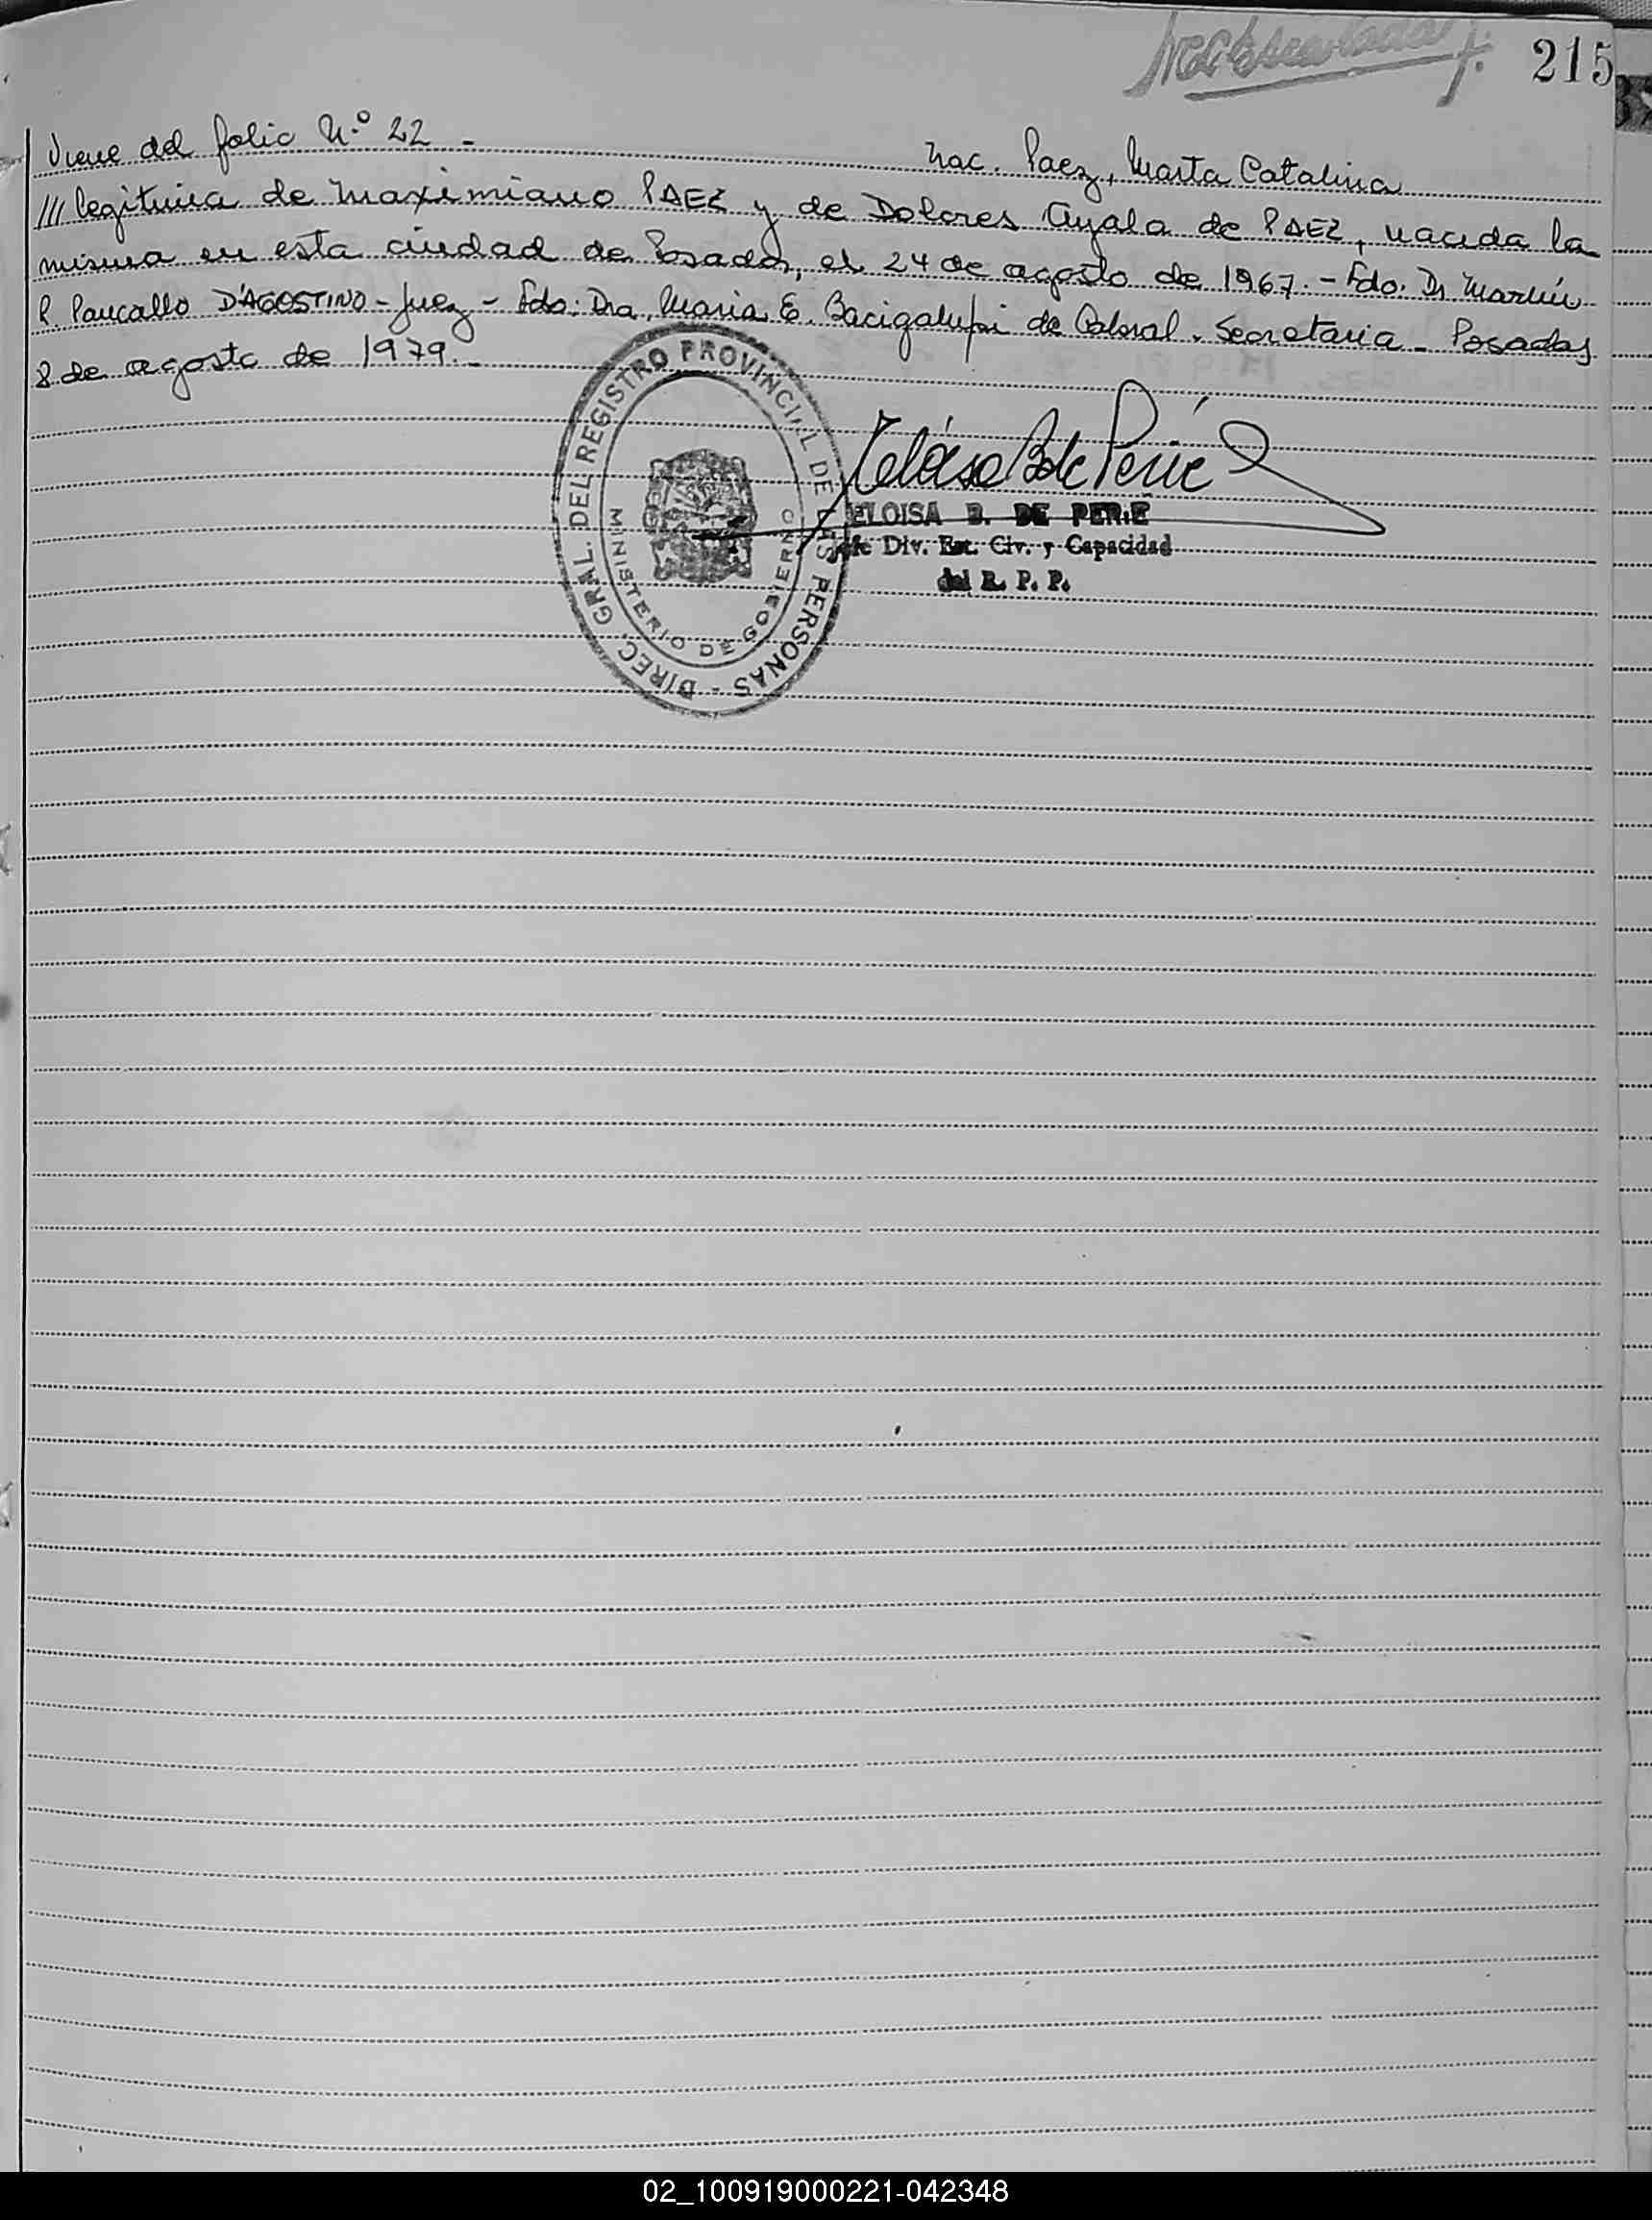 215
Viene del folio N.º 22 - Nac. Paez, Marta Catalina
/// legítima de Maximiano PAEZ y de Dolores Ayala de PAEZ, nacida la
misma en esta ciudad de Posadas, el 24 de agosto de 1967. - Fdo. Dr Martín
R. D'AGOSTINO - Juez - Fdo: Dra, Maria E. Bacigalupi de Cabral. Secretaria - Posadas
8 de agosto de 1979. -
DIREC. GRAL. DEL REGISTRO PROVINCIAL DE LAS PERSONAS -
MINISTERIO DE GOBIERNO
Eloisa B de Perié
ELOISA B. DE PERIE
Jefe Div. Est. Civ. y Capacidad
del R. P. P.
02_100919000221-042348